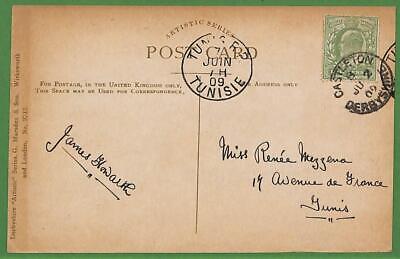 ARTISTIC SERIES
POST CARD
FOR POSTAGE, IN THE UNITED KINGDOM ONLY,
THIS SPACE MAY BE USED FOR CORRESPONDENCE.
ADDRESS ONLY
TUNIS R.P.
JUIN
7 H
09
TUNISIE
CASTLETON
JU 2
09
DERBYSHIRE
Derbyshire "Artistic" Series, G. Marsden & Son, Wirksworth
and London, No.
James Howarth
Miss Renée Mezzena
17 Avenue de France
Tunis